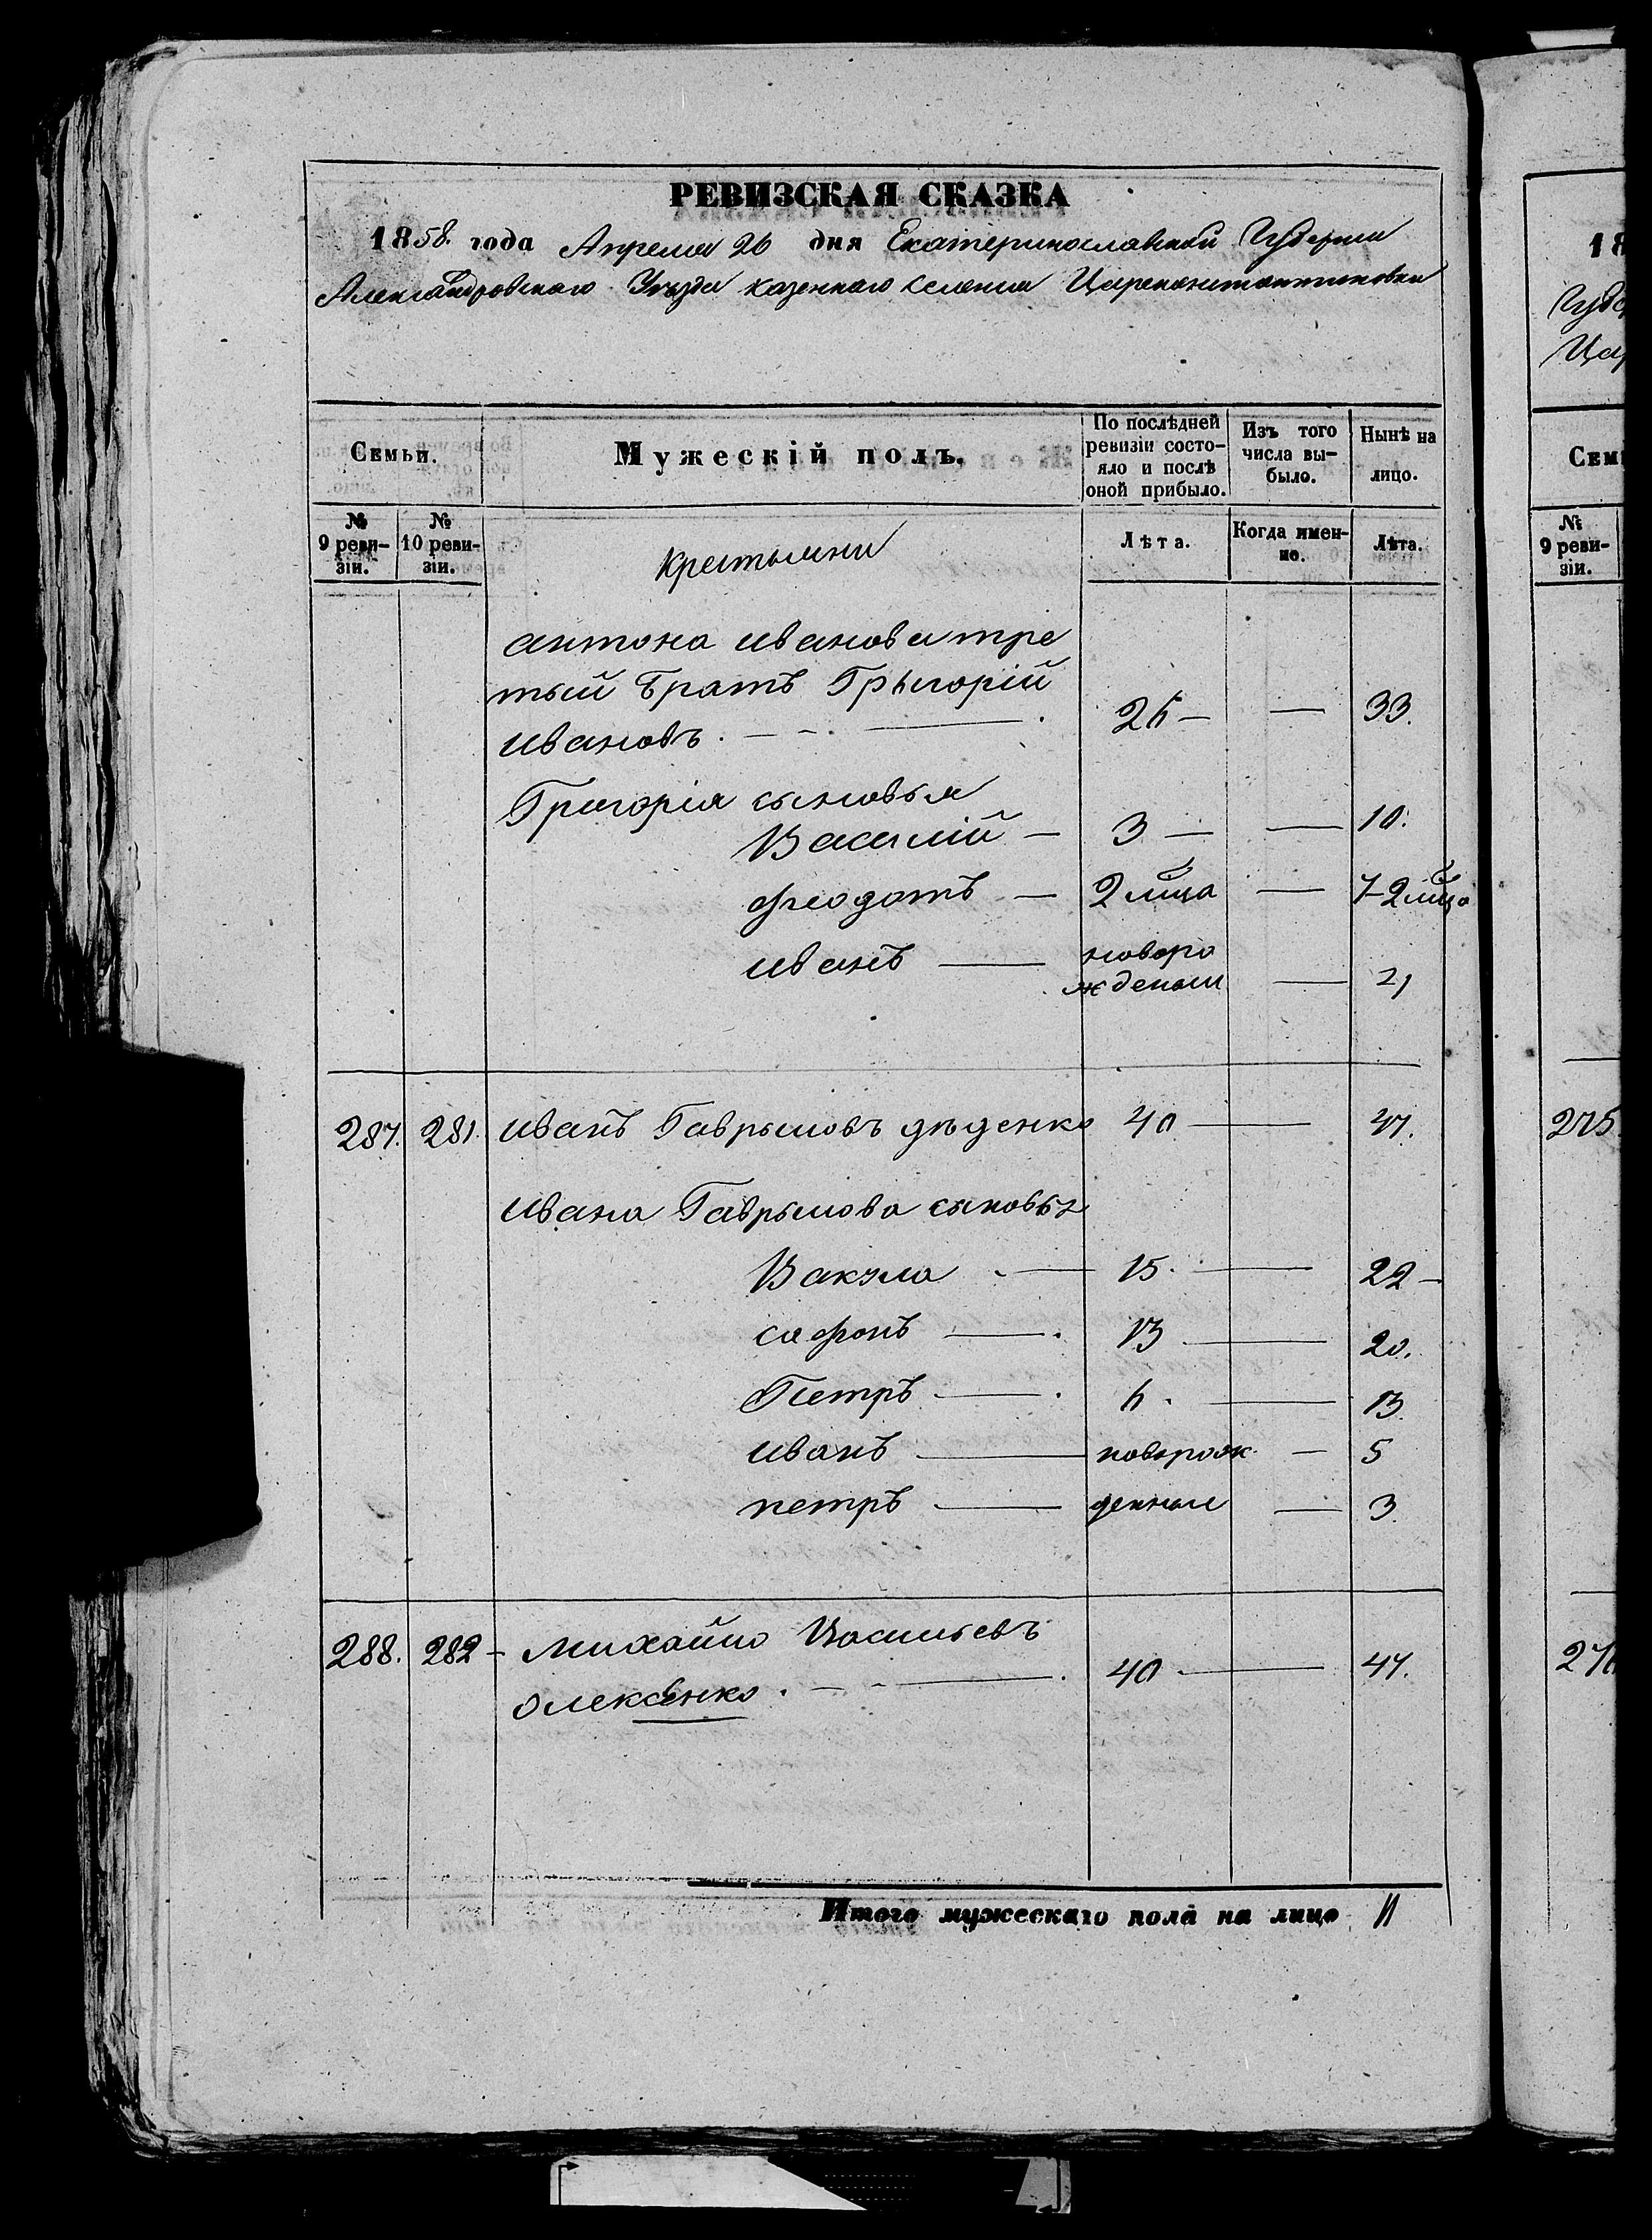 РЕВИЗСКАЯ СКАЗКА
1858. года Апреля 26 дня Екатеринославской Губернии
Александровского Уезда казенного селения Цареконстантиновки
Семьи. Мужескій полъ. По послѣдней ревизіи состояло и послѣ оной прибыло. Изъ того числа выбыло. Нынѣ на лицо.
№ 9 ревизіи. № 10 ревизіи. Крестьяни Лѣта. Когда именно. Лѣта.
антона иванова тре
тый братъ Грыгорій
ивановъ. 26 — — 33.
Григорія сыновья
Василій — 3 — — 10.
феодотъ — 2 мца — 7-2 мца
иванъ — новоро
жденыи — 2
287. 281. иванъ Гаврыловъ дѣденко 40 — 47.
ивана Гаврылова сыновья
Вакула — 15. — 22 —
сафонъ — 13 — 20.
Петръ — 6. — 13.
иванъ —новрож — 5
петръ — денные — 3.
288. 282 — михайло Васильевъ
олексѣнко. — 40 — 47.
Итого мужескаго пола на лицо 11
18
Губе
Цар
Сем
№ 9 ревизіи.
275.